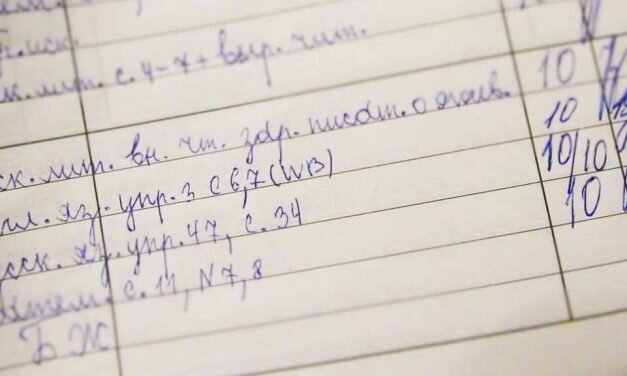 иск.
к. лит. с. 4-7 + выр. чит.
ск. лит. вн. чт. зар. писат. о 10
гл. яз. упр. 3 с 6,7 (WB) 10
сск. яз. упр. 47, с. 34 10/10
атем. с. 11, N 7, 8 10
БЖ